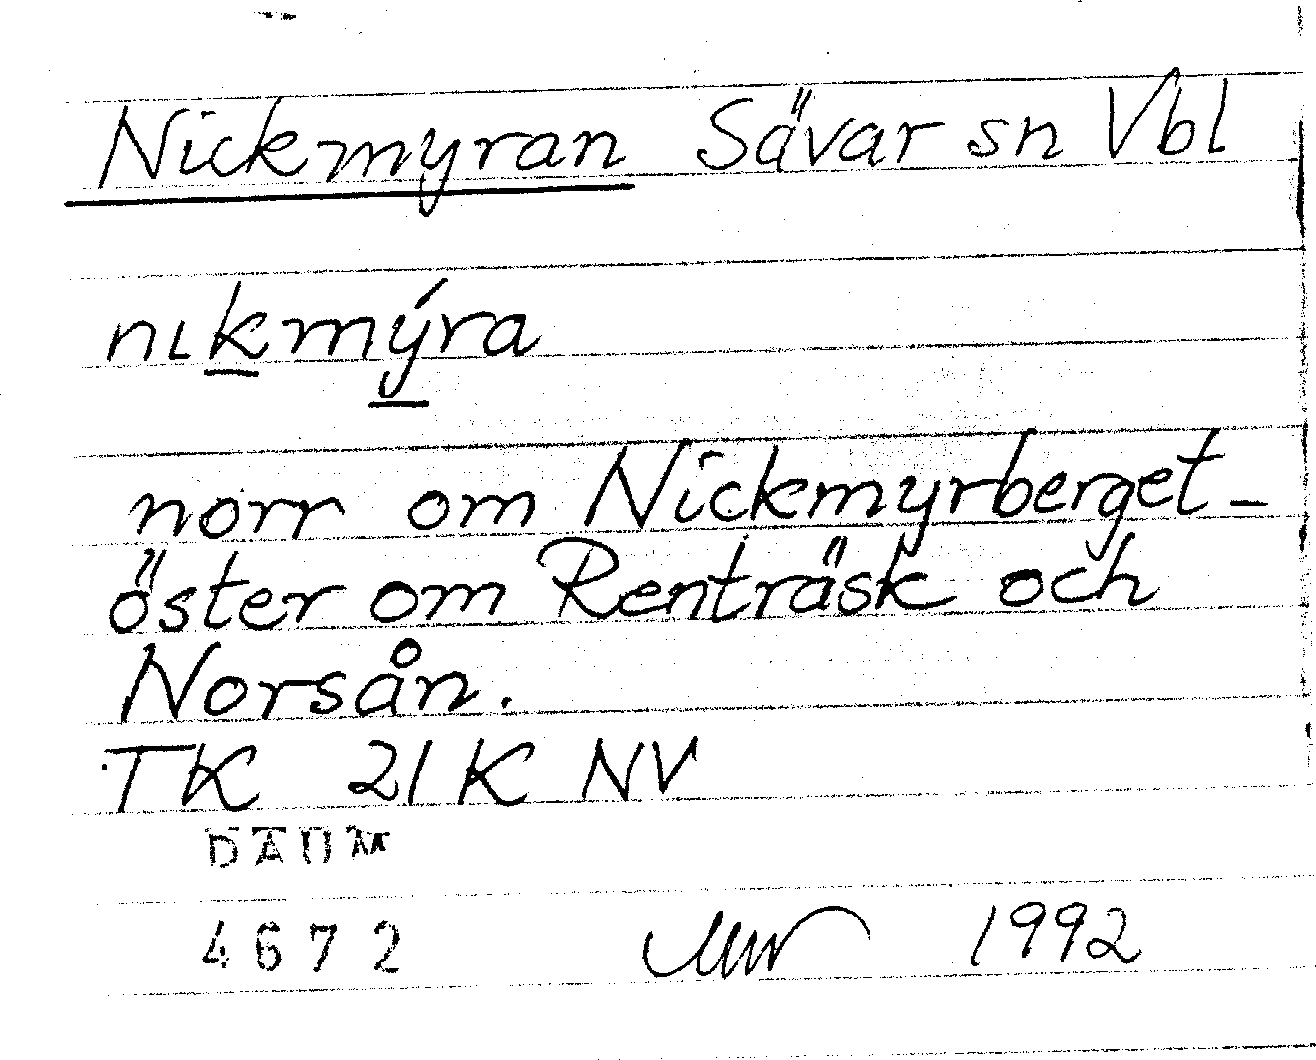 Nickmyran Sävar sn Vbl
nıkmýra
norr om Nickmyrberget -
öster om Renträsk och
Norsån.
TK 21 K NV
DAUM
4672 1992